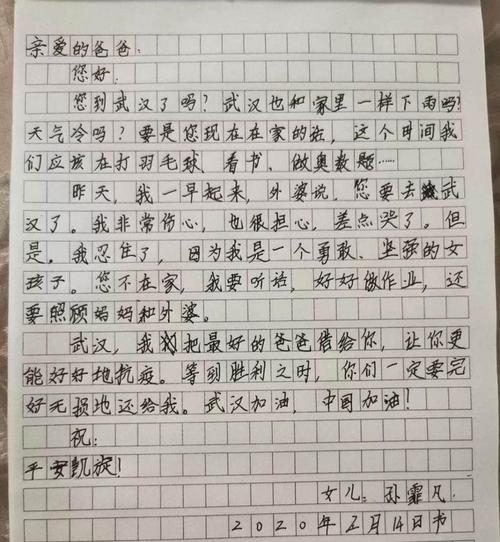 亲爱的爸爸：
您好：
您到武汉了吗？武汉也和家里一样下雨吗？
天气冷吗？要是您现在在家的话，这个时间我
们应该在打羽毛球、看书、做奥数题……
昨天，我一早起来，外婆说，您要去武
汉了。我非常伤心，也很担心，差点哭了。但
是。我忍住了，因为我是一个勇敢、坚强的女
孩子。您不在家，我要听话，好好做作业，还
要照顾妈妈和外婆。
武汉，我把最好的爸爸借给你，让你更
能好好地抗疫。等到胜利之时，你们一定要完
好无损地还给我。武汉加油，中国加油！
祝：
平安凯旋！
女儿：孙霏凡
2020年2月14日书